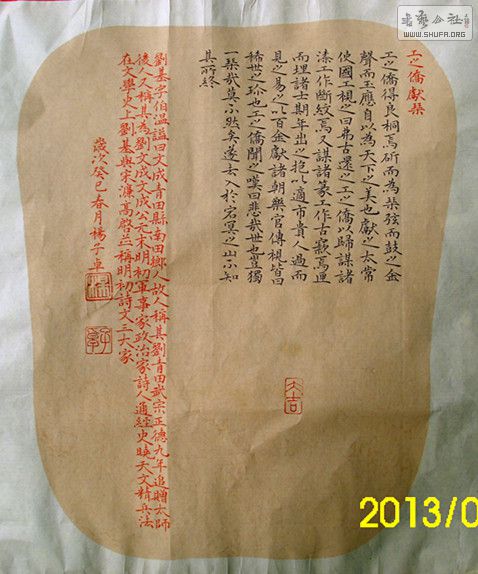 書藝公社
WWW.SHUFA.ORG
工之僑獻琹
工之僑得良桐焉斫而為琹弦而鼓之金
聲而玉應自以為天下之美也獻之太常
使國工視之曰弗古還之工之僑以歸謀諸
漆工作斷紋焉又謀諸篆工作古窾焉匣
而埋諸土期年出之抱以適市貴人過而
見之易之以百金獻諸朝樂官傳視皆曰
稀世之珍也工之僑聞之嘆曰悲哉世也豈獨
一琹哉莫不然矣遂去入於宕冥之山不知
其所終
劉基字伯温謚曰文成青田縣南田鄉人故人稱其劉青田武宗正德九年追贈太師
後人人稱其為劉文成文成公元末明初軍事家政治家詩人通經史曉天文精兵法
在文學史上劉基與宋濂高啓並稱明初詩文三大家
歲次癸巳春月楊子卓
大吉
2013/0